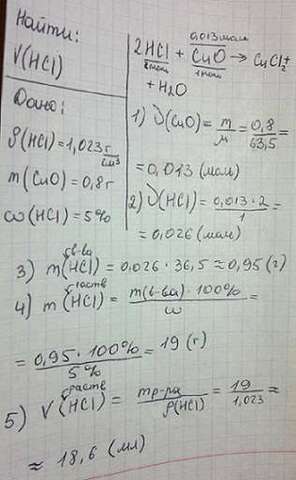 Найти:
V(HCl)
Дано:
ρ(HCl)=1,023 г/см³
m(CuO)=0,8г
ω(HCl)=5%
0,013моль
2HCl + CuO → CuCl₂+
2моль 1моль
+ H₂O
1) ν(CuO)= m/M = 0,8/63,5 =
= 0,013 (моль)
2) ν(HCl)= 0,013·2/1 =
= 0,026 (моль)
3) m в-ва (HCl) = 0,026·36,5 ≈ 0,95 (г)
4) m раств (HCl) = m(в-ва)·100%/ω =
= 0,95·100%/5% = 19 (г)
5) V раств (HCl) = mр-ра/ρ(HCl) = 19/1,023 ≈
≈ 18,6 (мл)